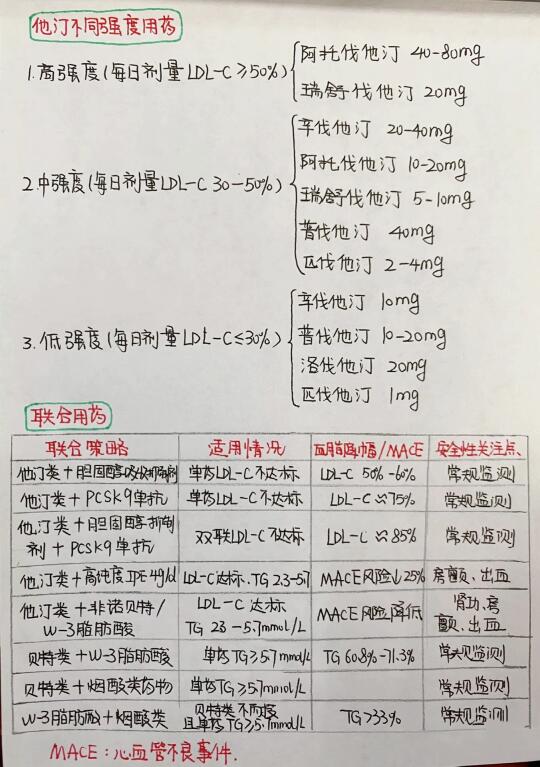 他汀不同强度用药
1.高强度(每日剂量LDL-C≥50%)
阿托伐他汀 40-80mg
瑞舒伐他汀 20mg
2.中强度(每日剂量LDL-C 30-50%)
辛伐他汀 20-40mg
阿托伐他汀 10-20mg
瑞舒伐他汀 5-10mg
普伐他汀 40mg
匹伐他汀 2-4mg
3.低强度(每日剂量LDL-C≤30%)
辛伐他汀 10mg
普伐他汀 10-20mg
洛伐他汀 20mg
匹伐他汀 1mg
联合用药
联合策略 适用情况 血脂降幅/MACE 安全性关注点
他汀类+胆固醇吸收抑制剂 单药LDL-C不达标 LDL-C 50%-60% 常规监测
他汀类+PCSK9单抗 单药LDL-C不达标 LDL-C≈75% 常规监测
他汀类+胆固醇抑制
剂+PCSK9单抗 双联LDL-C不达标 LDL-C≈85% 常规监测
他汀类+高纯度IPE 4g/d LDL-C达标.TG 2.3-5.7 MACE风险↓25% 房颤、出血
他汀类+非诺贝特/
W-3脂肪酸
LDL-C达标
TG 2.3-5.7mmol/L
MACE风险降低
肾功、房
颤、出血
贝特类+W-3脂肪酸 单药TG≥5.7mmol/L TG 60.8%-71.3% 常规监测
贝特类+烟酸类药物 单药TG≥5.7mmol/L 常规监测
W-3脂肪酸+烟酸类
贝特类不耐受
且单药TG≥5.7mmol/L
TG>33% 常规监测
MACE:心血管不良事件.